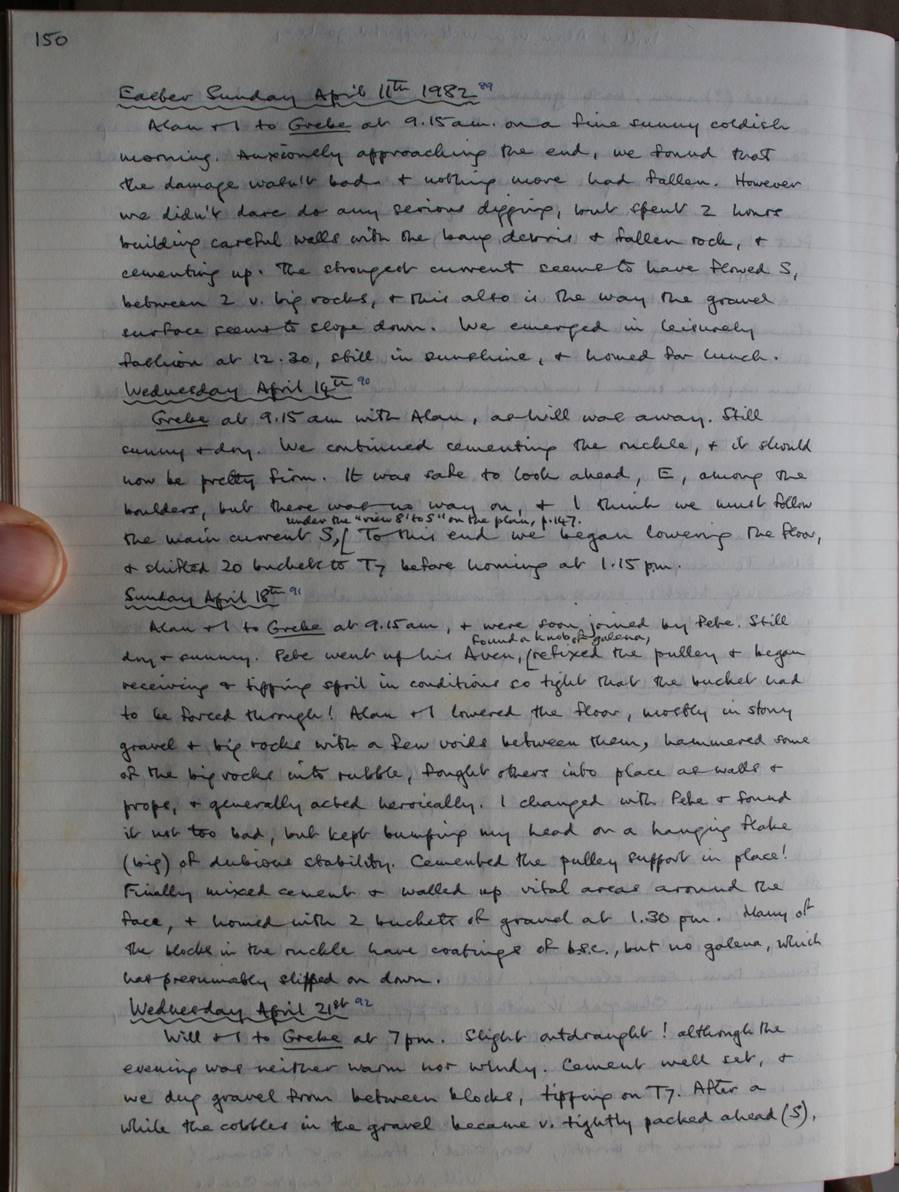 150
Easter Sunday April 11th 1982 89
Alan + I to Grebe at 9.15 am. on a fine sunny coldish
morning. Anxiously approaching the end, we found that
the damage wasn't bad + nothing more had fallen. However
we didn't dare do any serious digging, but spent 2 hours
building careful walls with the bang debris + fallen rock, +
cementing up. The strongest current seems to have flowed S,
between 2 v. big rocks, + this also is the way the gravel
surface seems to slope down. We emerged in leisurely
fashion at 12.30, still in sunshine, + homed for lunch.
Wednesday April 14th 90
Grebe at 9.15 am with Alan, as Will was away. Still
sunny + dry. We continued cementing the ruckle, + it should
now be pretty firm. It was safe to look ahead, E, among the
boulders, but there was no way on, + I think we must follow
under the "view 8' to S" on the plan, p.147.
the main current S,[ To this end we began lowering the floor,
+ shifted 20 buckets to T7 before homing at 1.15 pm.
Sunday April 18th 91
Alan + I to Grebe at 9.15 am, + were soon joined by Pete. Still
found a knob of galena,
dry + sunny. Pete went up his Aven,[refixed the pulley + began
receiving + tipping spoil in conditions so tight that the bucket had
to be forced through! Alan + I lowered the floor, mostly in stony
gravel + big rocks with a few voids between them, hammered some
of the big rocks into rubble, fought others into place as walls +
props, + generally acted heroically. I changed with Pete + found
it not too bad, but kept bumping my head on a hanging flake
(big) of dubious stability. Cemented the pulley support in place!
Finally mixed cement + walled up vital areas around the
face, + homed with 2 buckets of gravel at 1.30 pm. Many of
the blocks in the ruckle have coatings of b.s.c., but no galena, which
has presumably slipped on down.
Wednesday April 21st 92
Will + I to Grebe at 7 pm. Slight outdraught! although the
evening was neither warm nor windy. Cement well set, +
we dug gravel from between blocks, tipping on T7. After a
while the cobbles in the gravel became v. tightly packed ahead (S),